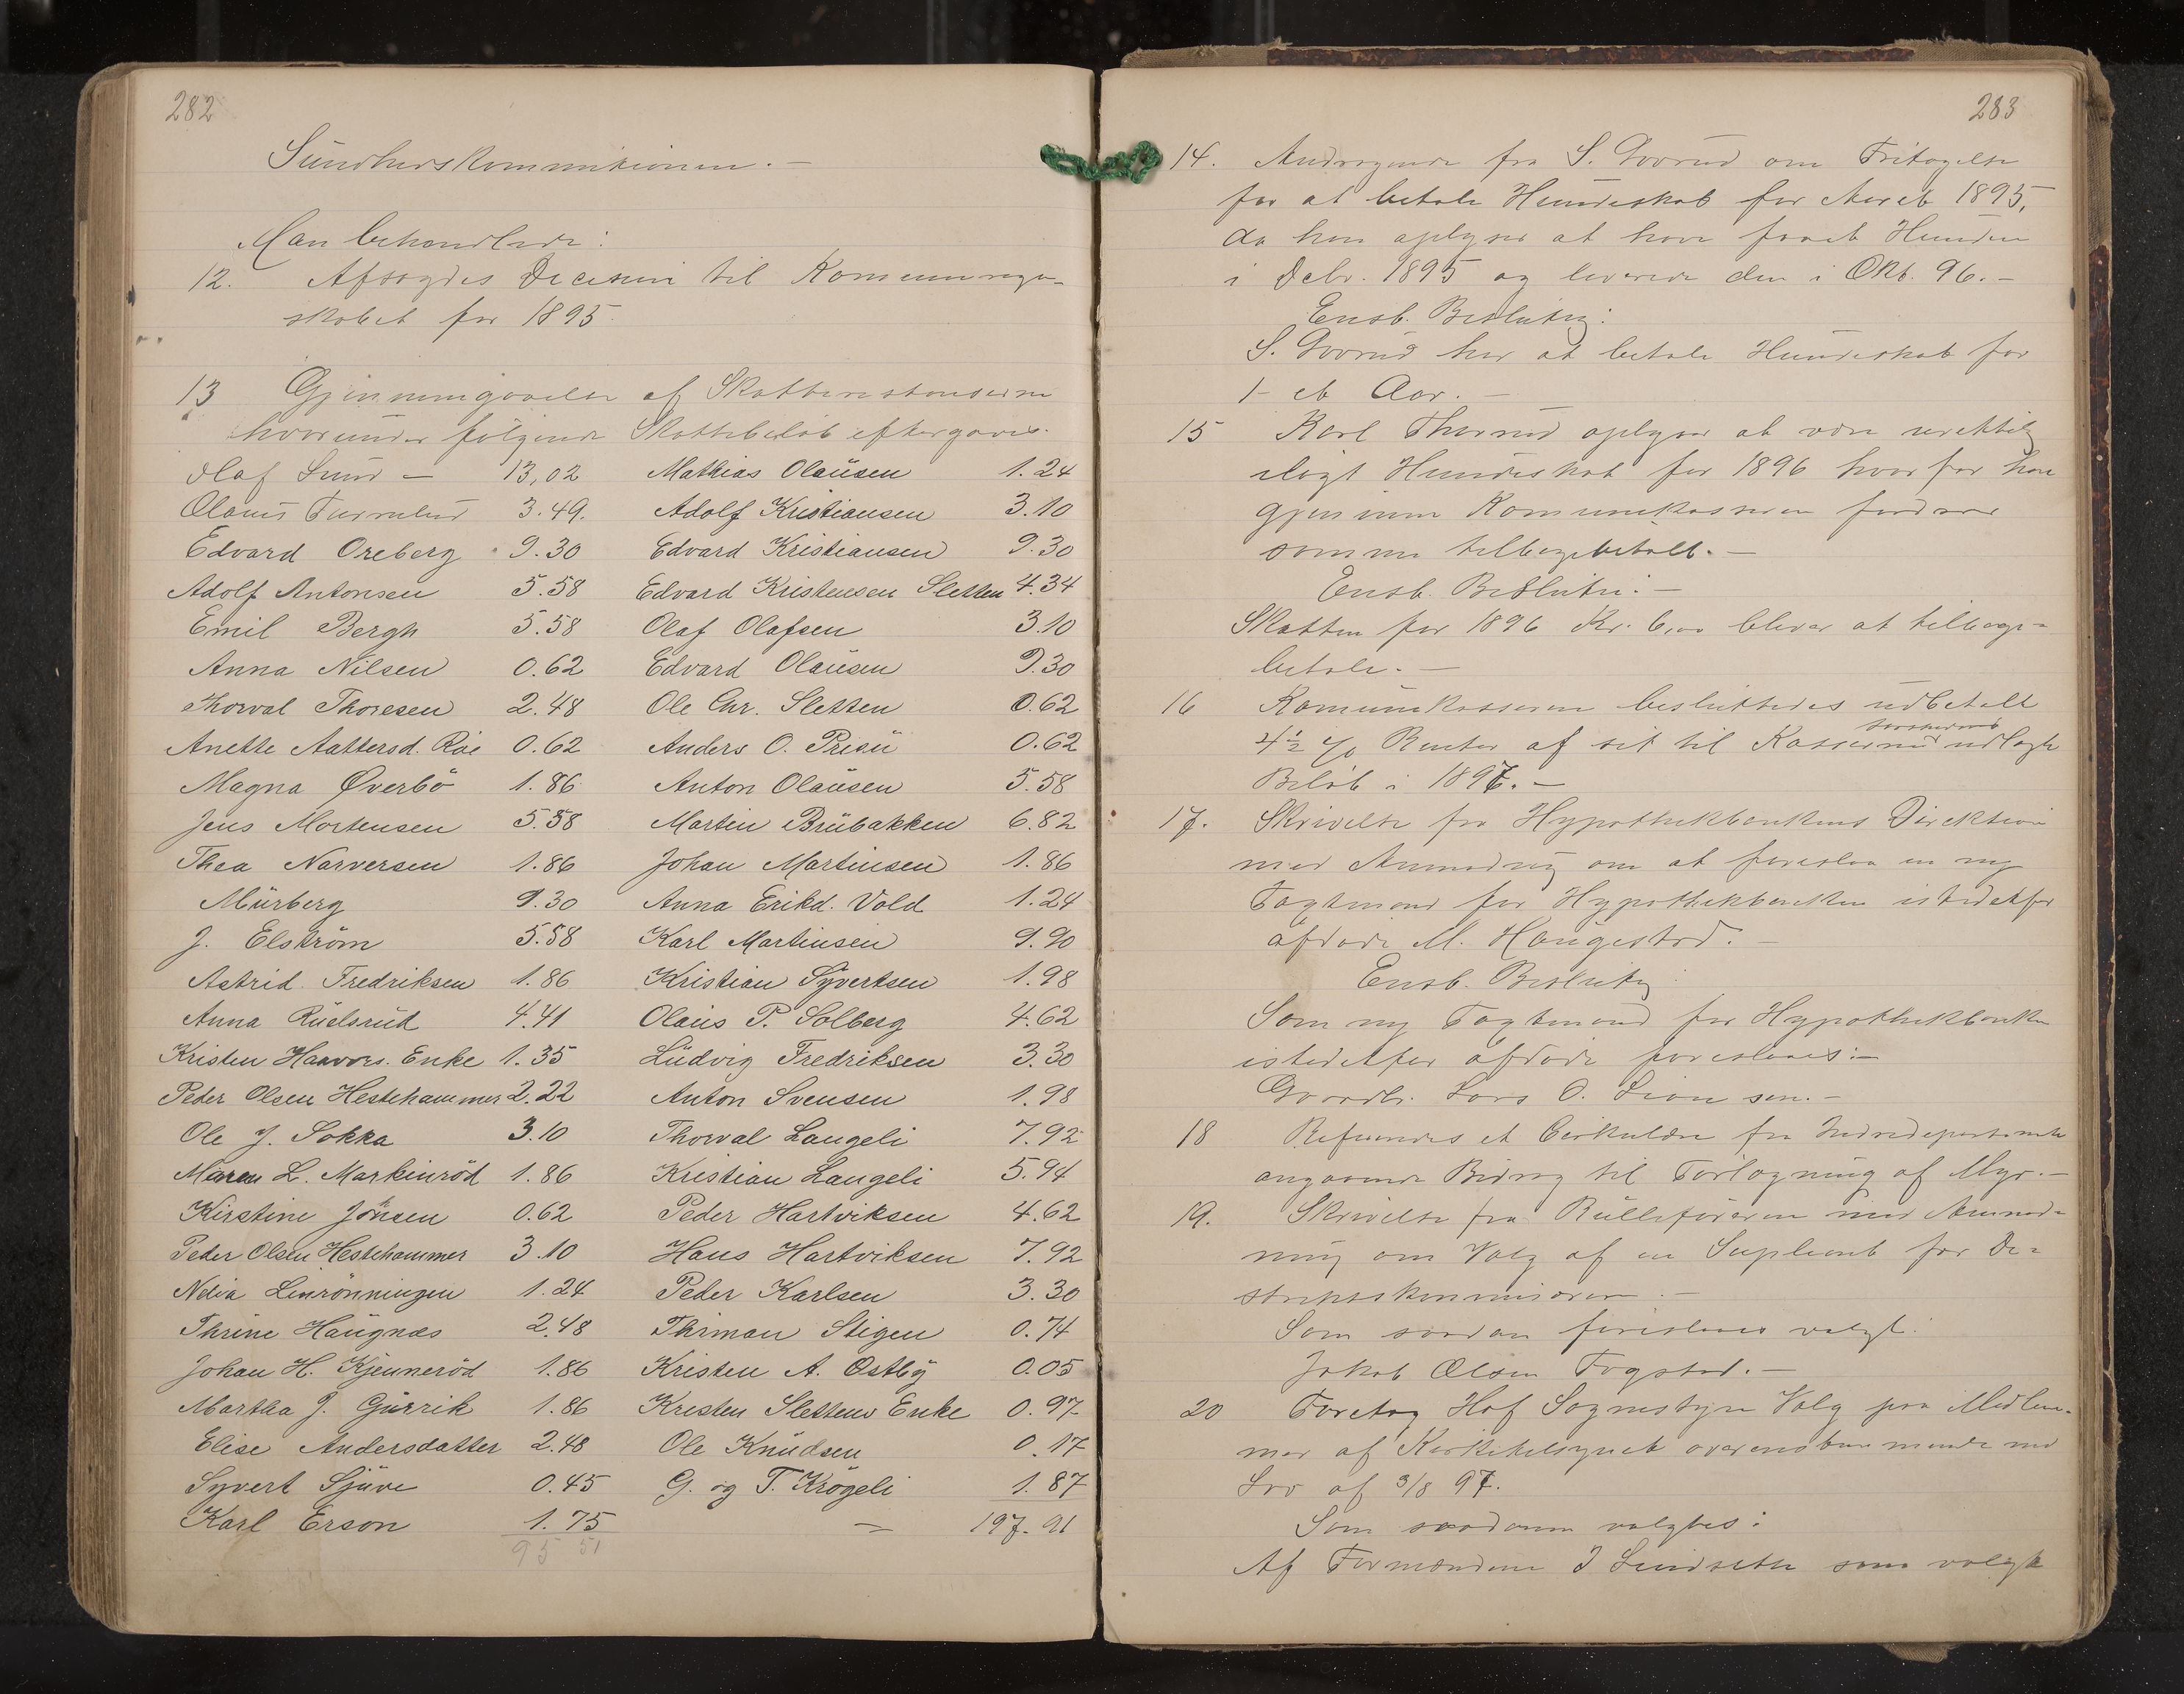 282
Sundhedskommisionen. —
Man behandlede:
12. Afsagdes Decision til Komuneregn-
skabet for 1895.
13 Gjennemgaaelse af Skatterestanserne
hvorunder følgende Skattebeløb eftergaves.
Olaf Lund — 13,02
Olaus 3.49.
Edvard Oreberg 9.30
Adolf Antonsen 5.58
Emil Bergh 5.58
Anna Nilsen 0.62
Thorval Thoresen 2.48
Anette Aattersd. Röe 0.62
Magna Øverbö 1.86
Jens Mortensen 5.58
Thea Narversen 1.86
Mürberg 9.30
J. Elström 5.58
Astrid Fredriksen 1.86
Anna Rüelsrüd 4.41
Kristen Haavors. Enke 1.35
Peder Olsen Hestehammer 2.22
Ole J. Sokka 3.10
Maren L. Markinröd 1.86
Kirstine Johnsen 0.62
Peder Olsen Hestehammer 3.10
Nelia Lenrönningen 1.24
Thrine Haügnæs 2.48
Johan H. Kjenneröd 1.86
Martha J. Gürrik 1.86
Elise Andersdatter 2.48
Syvert Sjüve 0.45
Karl Erson 1.75
95 51
Mathias Olaüsen 1.24
Adolf Kristiansen 3.10
Edvard Kristiansen 9.30
Edvard Kristensen Sletten 4.34
Olaf Olafsen 3.10
Edvard Olaüsen 9.30
Ole Chr. Sletten 0.62
Anders O. Prisü 0.62
Anton Olaüsen 5.58
Martin Brübakken 6.82
Johan Martinsen 1.86
Anna Erikd. Vold 1.24
Karl Martinsen 9.90
Kristian Syvertsen 1.98
Olaüs P. Solberg 4.62
Lüdvig Fredriksen 3.30
Anton Svensen 1.98
Thorval Langeli 7.92
Kristian Langeli 5.94
Peder Hartviksen 4.62
Hans Hartviksen 7.92
Peder Karlsen 3.30
Thrman Stigen 0.74
Kristen A. Østby 0.05
Kresten Slettens Enke 0.97
Ole Knüdsen 0.17
G. og T. Krögeli 1.87
— 197.91
283
14. Andragende fra S. Goorud om Fritagelse
for at betale Hundeskat for Aaret 1895,
da han oplyser at have faaet Hunden
i Debr. 1895 og leverede den i Okt. 96. —
Enst. Beslutn:
S. Goorud har at betale Hundeskat for
1 - et Aar. —
15 Karl Thorrud oplyser at være urettelig
iligt Hundeskat for 1896 hvorfor han
gjennem Komunekasseren fordrer
samme tilbagebetalt. —
Enst. Beslutn: —
Skatten for 1896 Kr. 6,00 bliver at tilbage-
betale. —
16 Komunekasseren besluttedes udbetalt
4½ % Renter af sit til Kassen udlagte
Beløb i 1897. —
17. Skrivelse fra Hypothekbankens Direktion
med Anmodning om at foreslaa en ny
Tagtmand for Hypothekbanken istedetfor
afdøde M. Haugestad. —
Enst. Beslutn:
Som ny Tagtmand for Hypothekbanken
istedetfor afdøde foreslaaes: —
Gaardbr. Lars O. Lien sen. —
18 Refereredes et Cirkulære fra Indredepartemente
angaaende Bidrag til Torlægning af Myr. —
19. Skrivelse fra Rulleføreren med Anmod-
ning om Valg af en Supleant for Di-
striktskommisæren. —
Som saadan foreslaaes valgt:
Jakob Olsen Fogstad. —
20 Foretog Hof Sognestyre Valg paa Medlem-
mer af Kirketilsynet overensstemmende med
Lov af 3/8 97.
Som saadanne valgtes:
Af Formændene J Lindseth som valgte